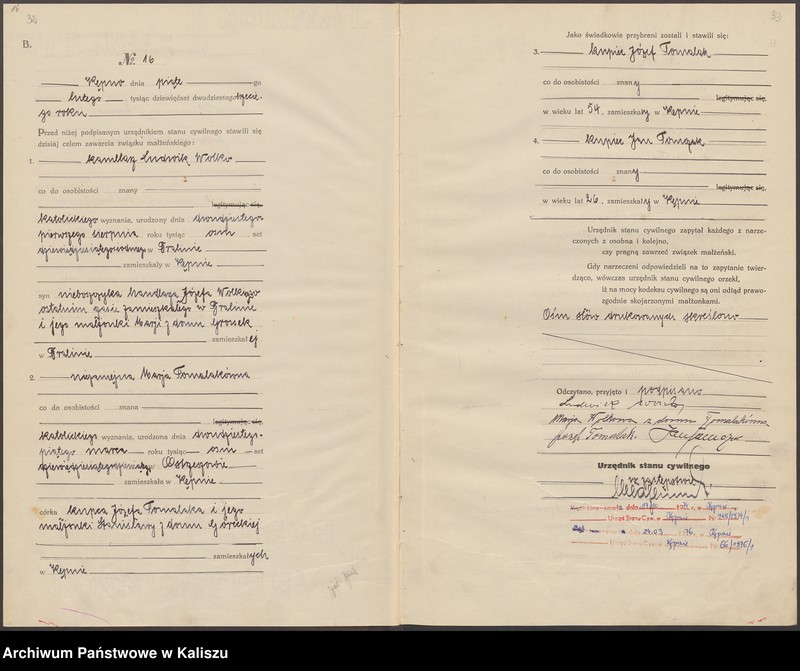 16
32
B.
№ 16
Kępno dnia piąte go
lutego tysiąc dziewięćset dwudziestego trzecie-
go roku
Przed niżej podpisanym urzędnikiem stanu cywilnego stawili się
dzisiaj celem zawarcia związku małżeńskiego:
1. handlarz Ludwik Wolko
co do osobistości znany
legitymując się,
katolickiego wyznania, urodzony dnia dwudziestego
pierwszego sierpnia roku tysiąc osm set
w Bralinie
zamieszkały w Kępnie
syn nieboszczyka handlarza Józefa
ostatnim zamieszkałego w Bralinie
i jego małżonki Marji z domu
zamieszkałej
w Bralinie
2. niezamężna Marja Tomalakówna
co do osobistości znana
legitymując się,
katolickiego wyznania, urodzona dnia dwudziestego-
piątego marca roku tysiąc osm set
w Ostrzeszowie
zamieszkała w Kępnie
córka kupca Józefa Tomalaka i jego
małżonki Stanisławy z domu Góreckiej
zamieszkałych
w Kępnie
33
Jako świadkowie przybrani zostali i stawili się:
3. kupiec Józef Tomalak
co do osobistości znany
legitymując się,
w wieku lat 54, zamieszkały w Kępnie
4. kupiec Jan
co do osobistości znany
legitymując się,
w wieku lat 26, zamieszkały w Kępnie
Urzędnik stanu cywilnego zapytał każdego z narze-
czonych z osobna i kolejno,
czy pragną zawrzeć związek małżeński.
Gdy narzeczeni odpowiedzieli na to zapytanie twier-
dząco, wówczas urzędnik stanu cywilnego orzekł,
iż na mocy kodeksu cywilnego są oni odtąd prawo-
zgodnie skojarzonymi małżonkami.
Ośm słów drukowanych skreślono
Odczytano, przyjęto i podpisano
Ludwik
Marja Wolkowa z domu Tomalakówna
Józef Tomalak.
Urzędnik stanu cywilnego
w zastępstwie
Urząd Stanu Cyw. w Kępnie
dnia 24.03 1976. w Kępnie
Urząd Stanu Cyw. w Kępnie Nr 66/1976/
Archiwum Państwowe w Kaliszu